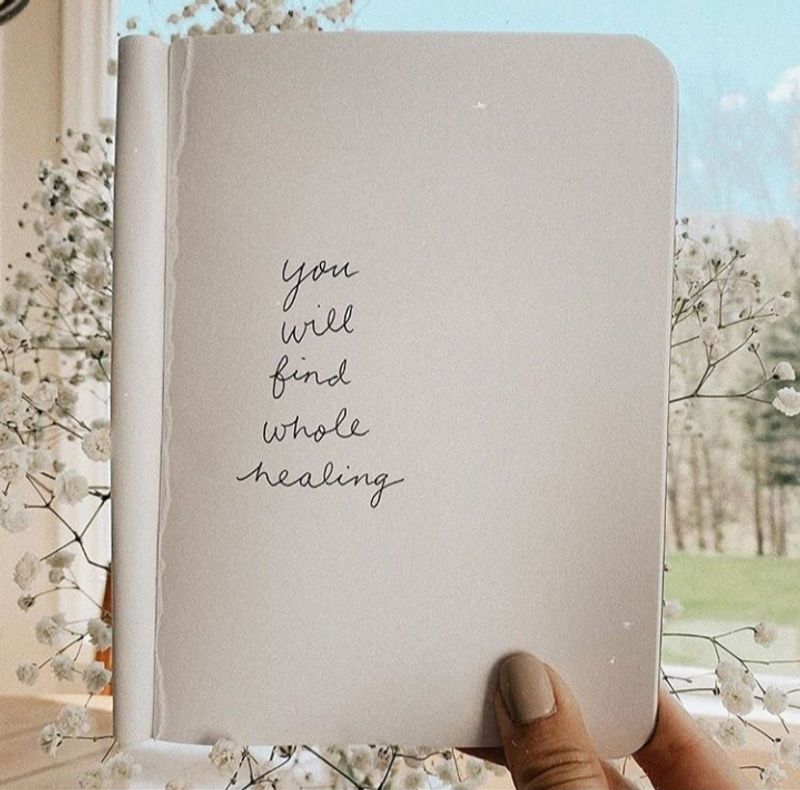 you
will
find
whole
healing